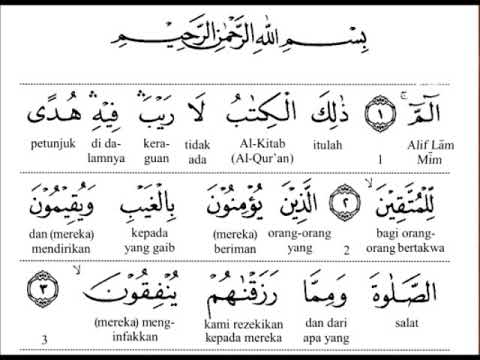 بِسْمِ اللّٰهِ الرَّحْمٰنِ الرَّحِيْمِ
الۤمّۤ ۚ ١ ذٰلِكَ الْكِتٰبُ لَا رَيْبَ ۛ فِيْهِ ۛ هُدًى
Alif Lām Mīm
1
itulah
Al-Kitab (Al-Qur'an)
tidak ada
kera-guan
di da-lamnya
petunjuk
لِّلْمُتَّقِيْنَ ۙ ٢ الَّذِيْنَ يُؤْمِنُوْنَ بِالْغَيْبِ وَيُقِيْمُوْنَ
bagi orang-orang bertakwa
2
orang-orang yang
(mereka) beriman
kepada yang gaib
dan (mereka) mendirikan
الصَّلٰوةَ وَمِمَّا رَزَقْنٰهُمْ يُنْفِقُوْنَ ۙ ٣
salat
dan dari apa yang
kami rezekikan kepada mereka
(mereka) meng-infakkan
3